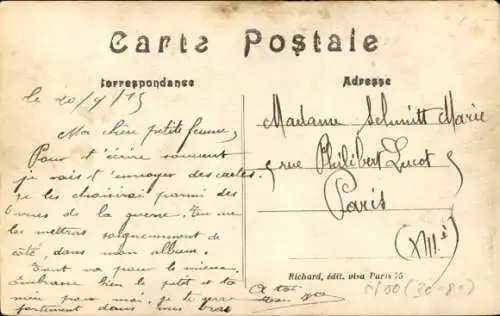 Carte Postale
Correspondance
Adresse
le 20/9/15
Ma chère petite femme,
Pour t'écrire souvent
je vais t'envoyer des cartes.
je les choisirai parmi des
vues de la guerre. Tu me
les mettras soigneusement de
côté, dans mon album.
Tout va pour le mieux.
Embrasse bien le petit et ta
mère pour moi, je te serre
fortement dans mes bras
A toi
Madame Schmitt Marie
5 rue Philibert Lucot 5
Paris
(XIIIè)
Richard, édit. visa Paris 75